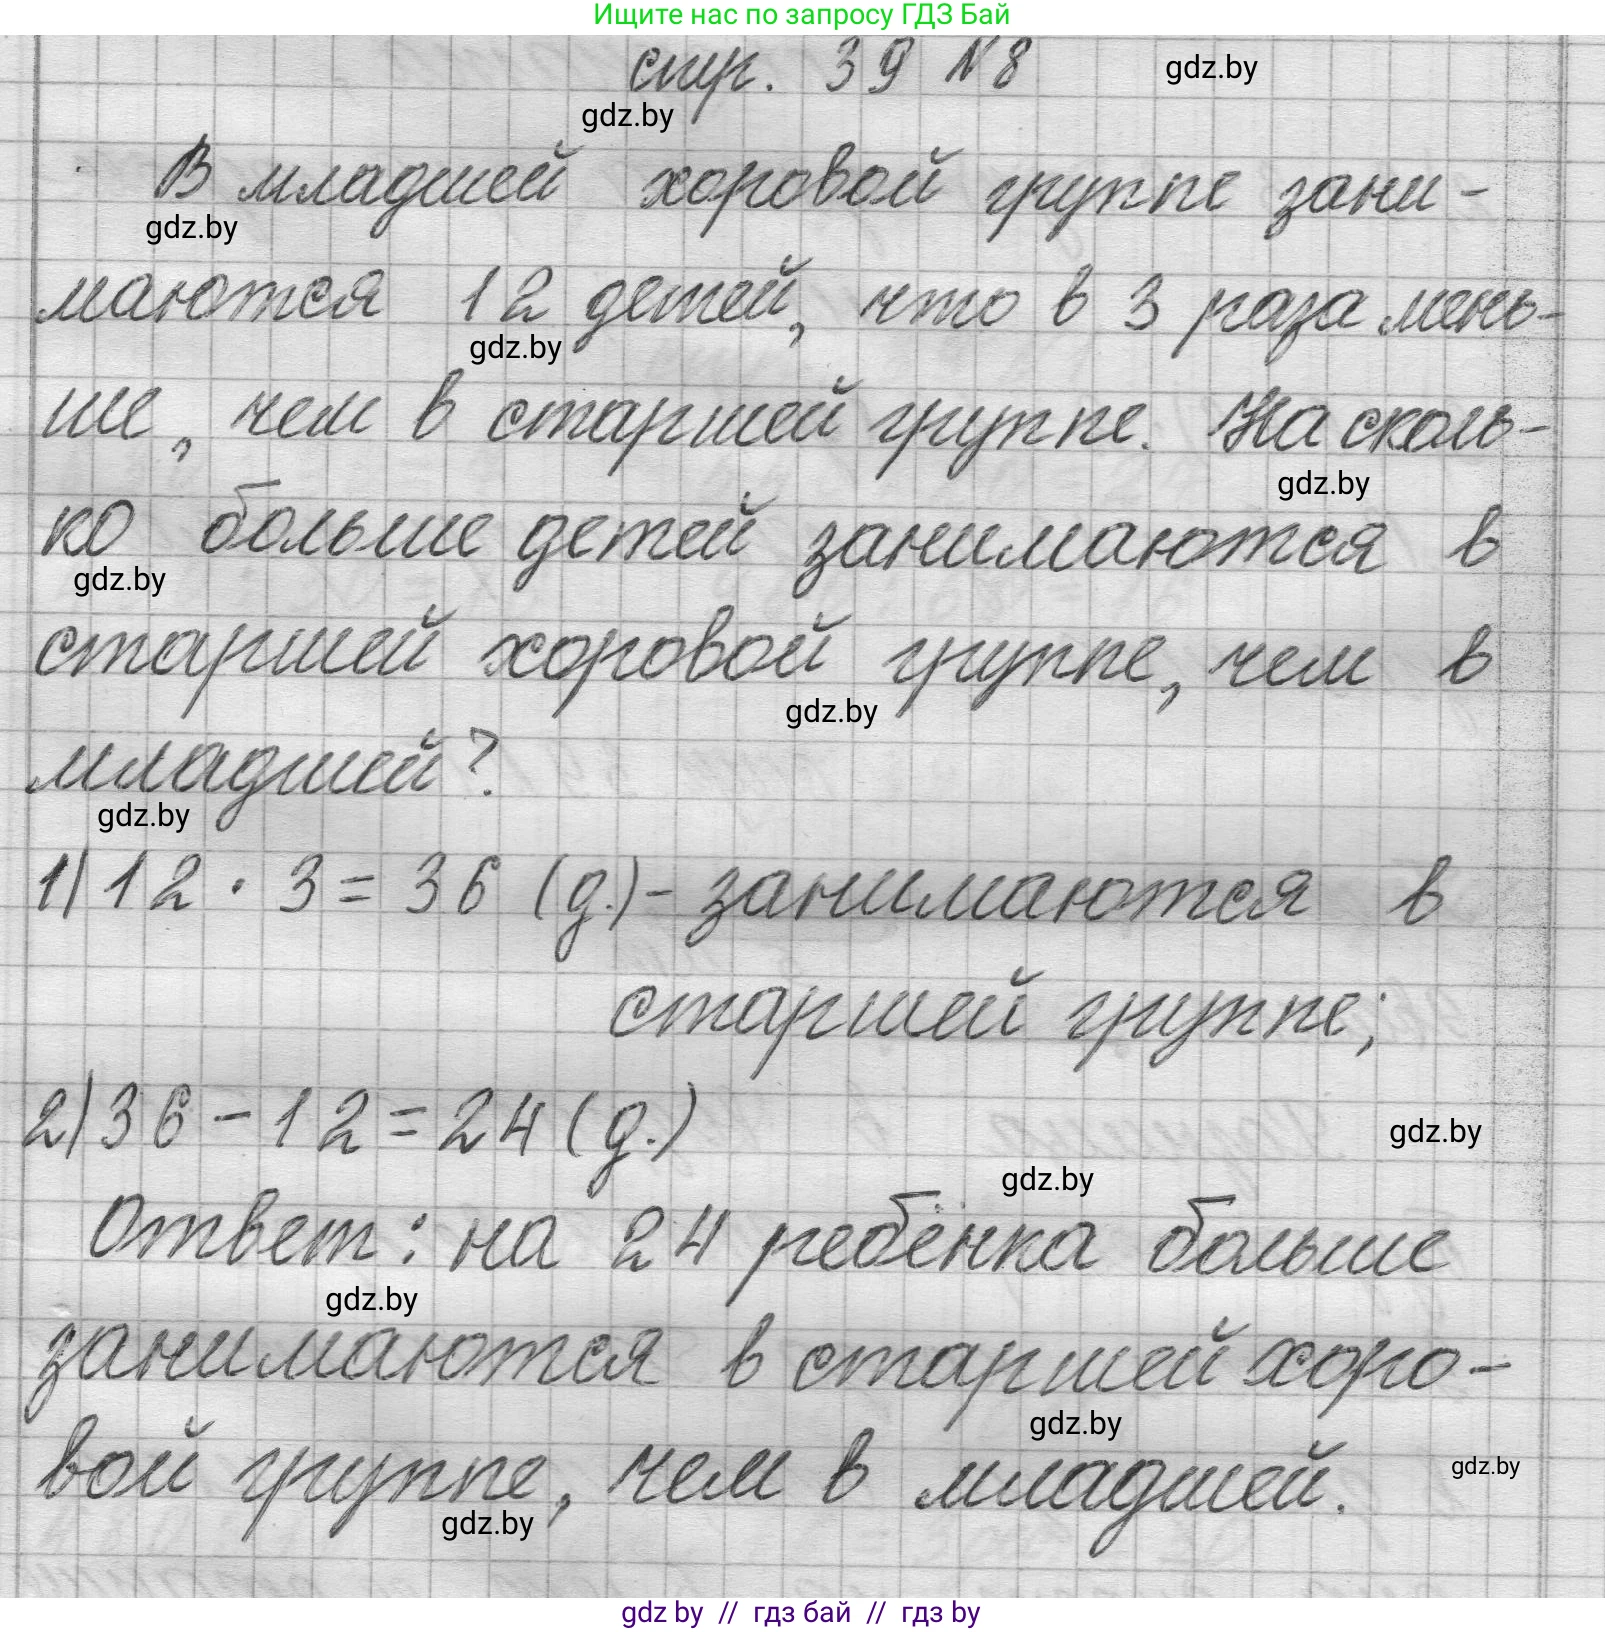 Ищите нас по запросу ГДЗ Бай
стр. 39 №8
gdz.by
gdz.by
В младшей хоровой группе зани-
gdz.by
маются 12 детей, что в 3 раза мень-
gdz.by
ше, чем в старшей группе. На сколь-
gdz.by
ко больше детей занимаются в
gdz.by
старшей хоровой группе, чем в
gdz.by
младшей?
gdz.by
1) 12 · 3 = 36 (д.) - занимаются в
старшей группе;
2) 36 - 12 = 24 (д.)
gdz.by
gdz.by
Ответ: на 24 ребёнка больше
gdz.by
занимаются в старшей хоро-
gdz.by
вой группе, чем в младшей.
gdz.by
gdz.by
gdz by // гдз бай // гдз by